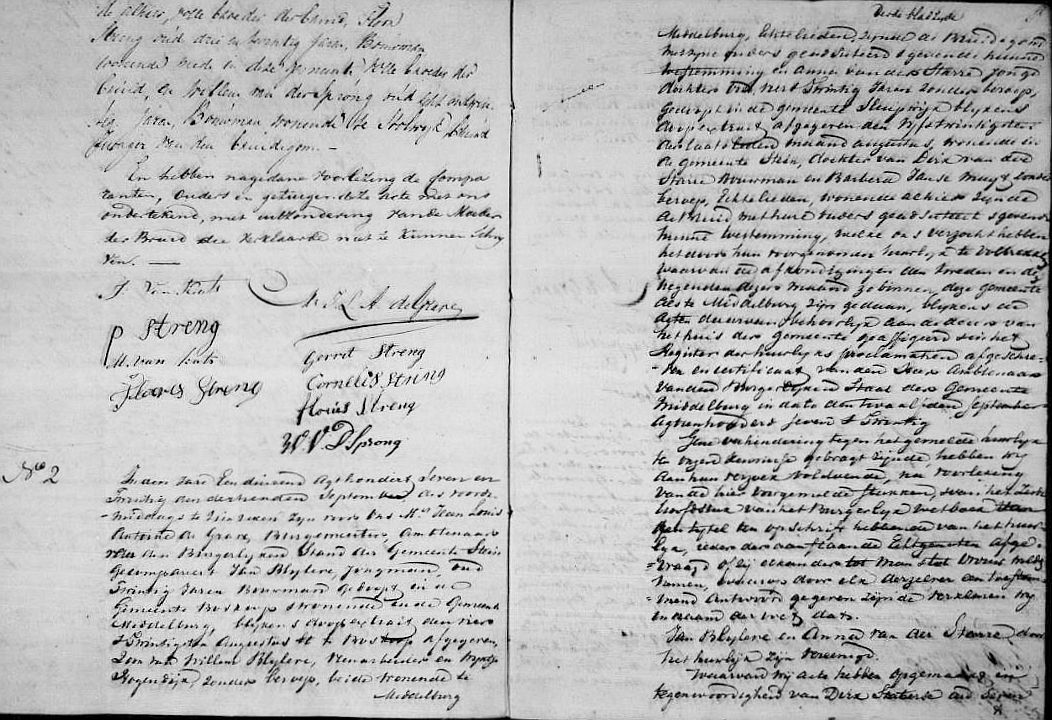 de akers, volle broeder der bruid, Flor
Streng oud drie en twintig Jaren, Bouwman
wonende mede in deze volle broeder der
bruid, en Willem van der Sprong oud
Jaren, Bouwman wonende te Stolwyk
Zwager van den bruidegom. —
En hebben nagedane voorlezing de Compa
ranten, Ouders en getuigen deze Acte met ons
ondertekend, met uitzondering van de Moeder
der Bruid die verklaarde niet te kunnen Schry
ven. —
de Grave
P Streng
Gerrit Streng
Floris Streng
Cornelis Streng
floris Streng
W V D Sprong
No 2
In den Jare Een duizend Agt honderd Seven en
Twintig den derthienden September des voor-
-middags te tien uren Zyn voor Ons Mr Jean Louis
Antoine de Grave, Burgemeester, Ambtenaar
van den Burgerlyken Stand der Gemeente Stein
Gecompareert Jan Blyleve, Jongman, oud
Twintig Jaren Bouwman Gedoopt in de
Gemeente Boskoop Wonende in de Gemeente
Middelburg, blykens doop extract den vier
& Twintigsten Augustus te Boskoop afgegeven,
Zoon van Willem Blyleve, en
Hogendyk, Zonder beroep, beide Wonende te
Middelburg
Derde bladzyde
Middelburg, Echtelieden, zynde de Bruidegom
met zyne Ouders geadsisteerd & gevende hunne
toestemming en Anna van der Starre Jonge
dochter oud Twintig Jaren zonder beroep,
Gedoopt in de gemeente Sluipwyk blykens
doop extract, afgegeven den vyf & twintigsten
der laatstleden maand augustus, wonende in
de gemeente Stein, dochter van Dirk van der
Starre Bouwman en Barbera zonder
beroep, Echtelieden, wonende alhier zynde
de Bruid met hare Ouders geadsisteert & gevende
hunne toestemming, welke ons verzocht hebben
het door hun voorgenomen huwlyk te voltrekken
waarvan de afkondigingen den tweden en de
Negenden dezer maand zo binnen deze gemeente
als te Middelburg zyn gedaan, blykens de
Acten daarvan behoorlyk aan de deur van
het huis der gemeente geaffigeerd & in het
Register der huwlyks proclamatien afgeschre-
-ven en certificaat van den Heer Ambtenaar
van den Burgerlyken Staat der Gemeente
Middelburg in dato den twaalfden September
Agtienhonderd Seven & Twintig
Gene verhindering tegen het gemelde huwlyk
te onzer kennisse gebragt zynde hebben wy
aan hun verzoek voldoende, na voorlezing
van de hier voorgemelde stukken, & van het Zesde
hoofdstuk van het Burgerlyk Wetboek
den tytel ten opschrift hebbende van het huw
lyk, ieder der aanstaande Echtgenoten afge-
-vraagd of zy elkander tot Man &
Nemen, en hierop door elk derzelver een toestem-
-mend Antwoord gegeven zynde verklaren wy
in naam der wet, dat.
Jan Blyleve en Anna van der Starre door
het huwlyk zyn Vereenigt.
Waarvan Wy Acte hebben opgemaakt in
tegenwoordigheid van Dirk oud Seven